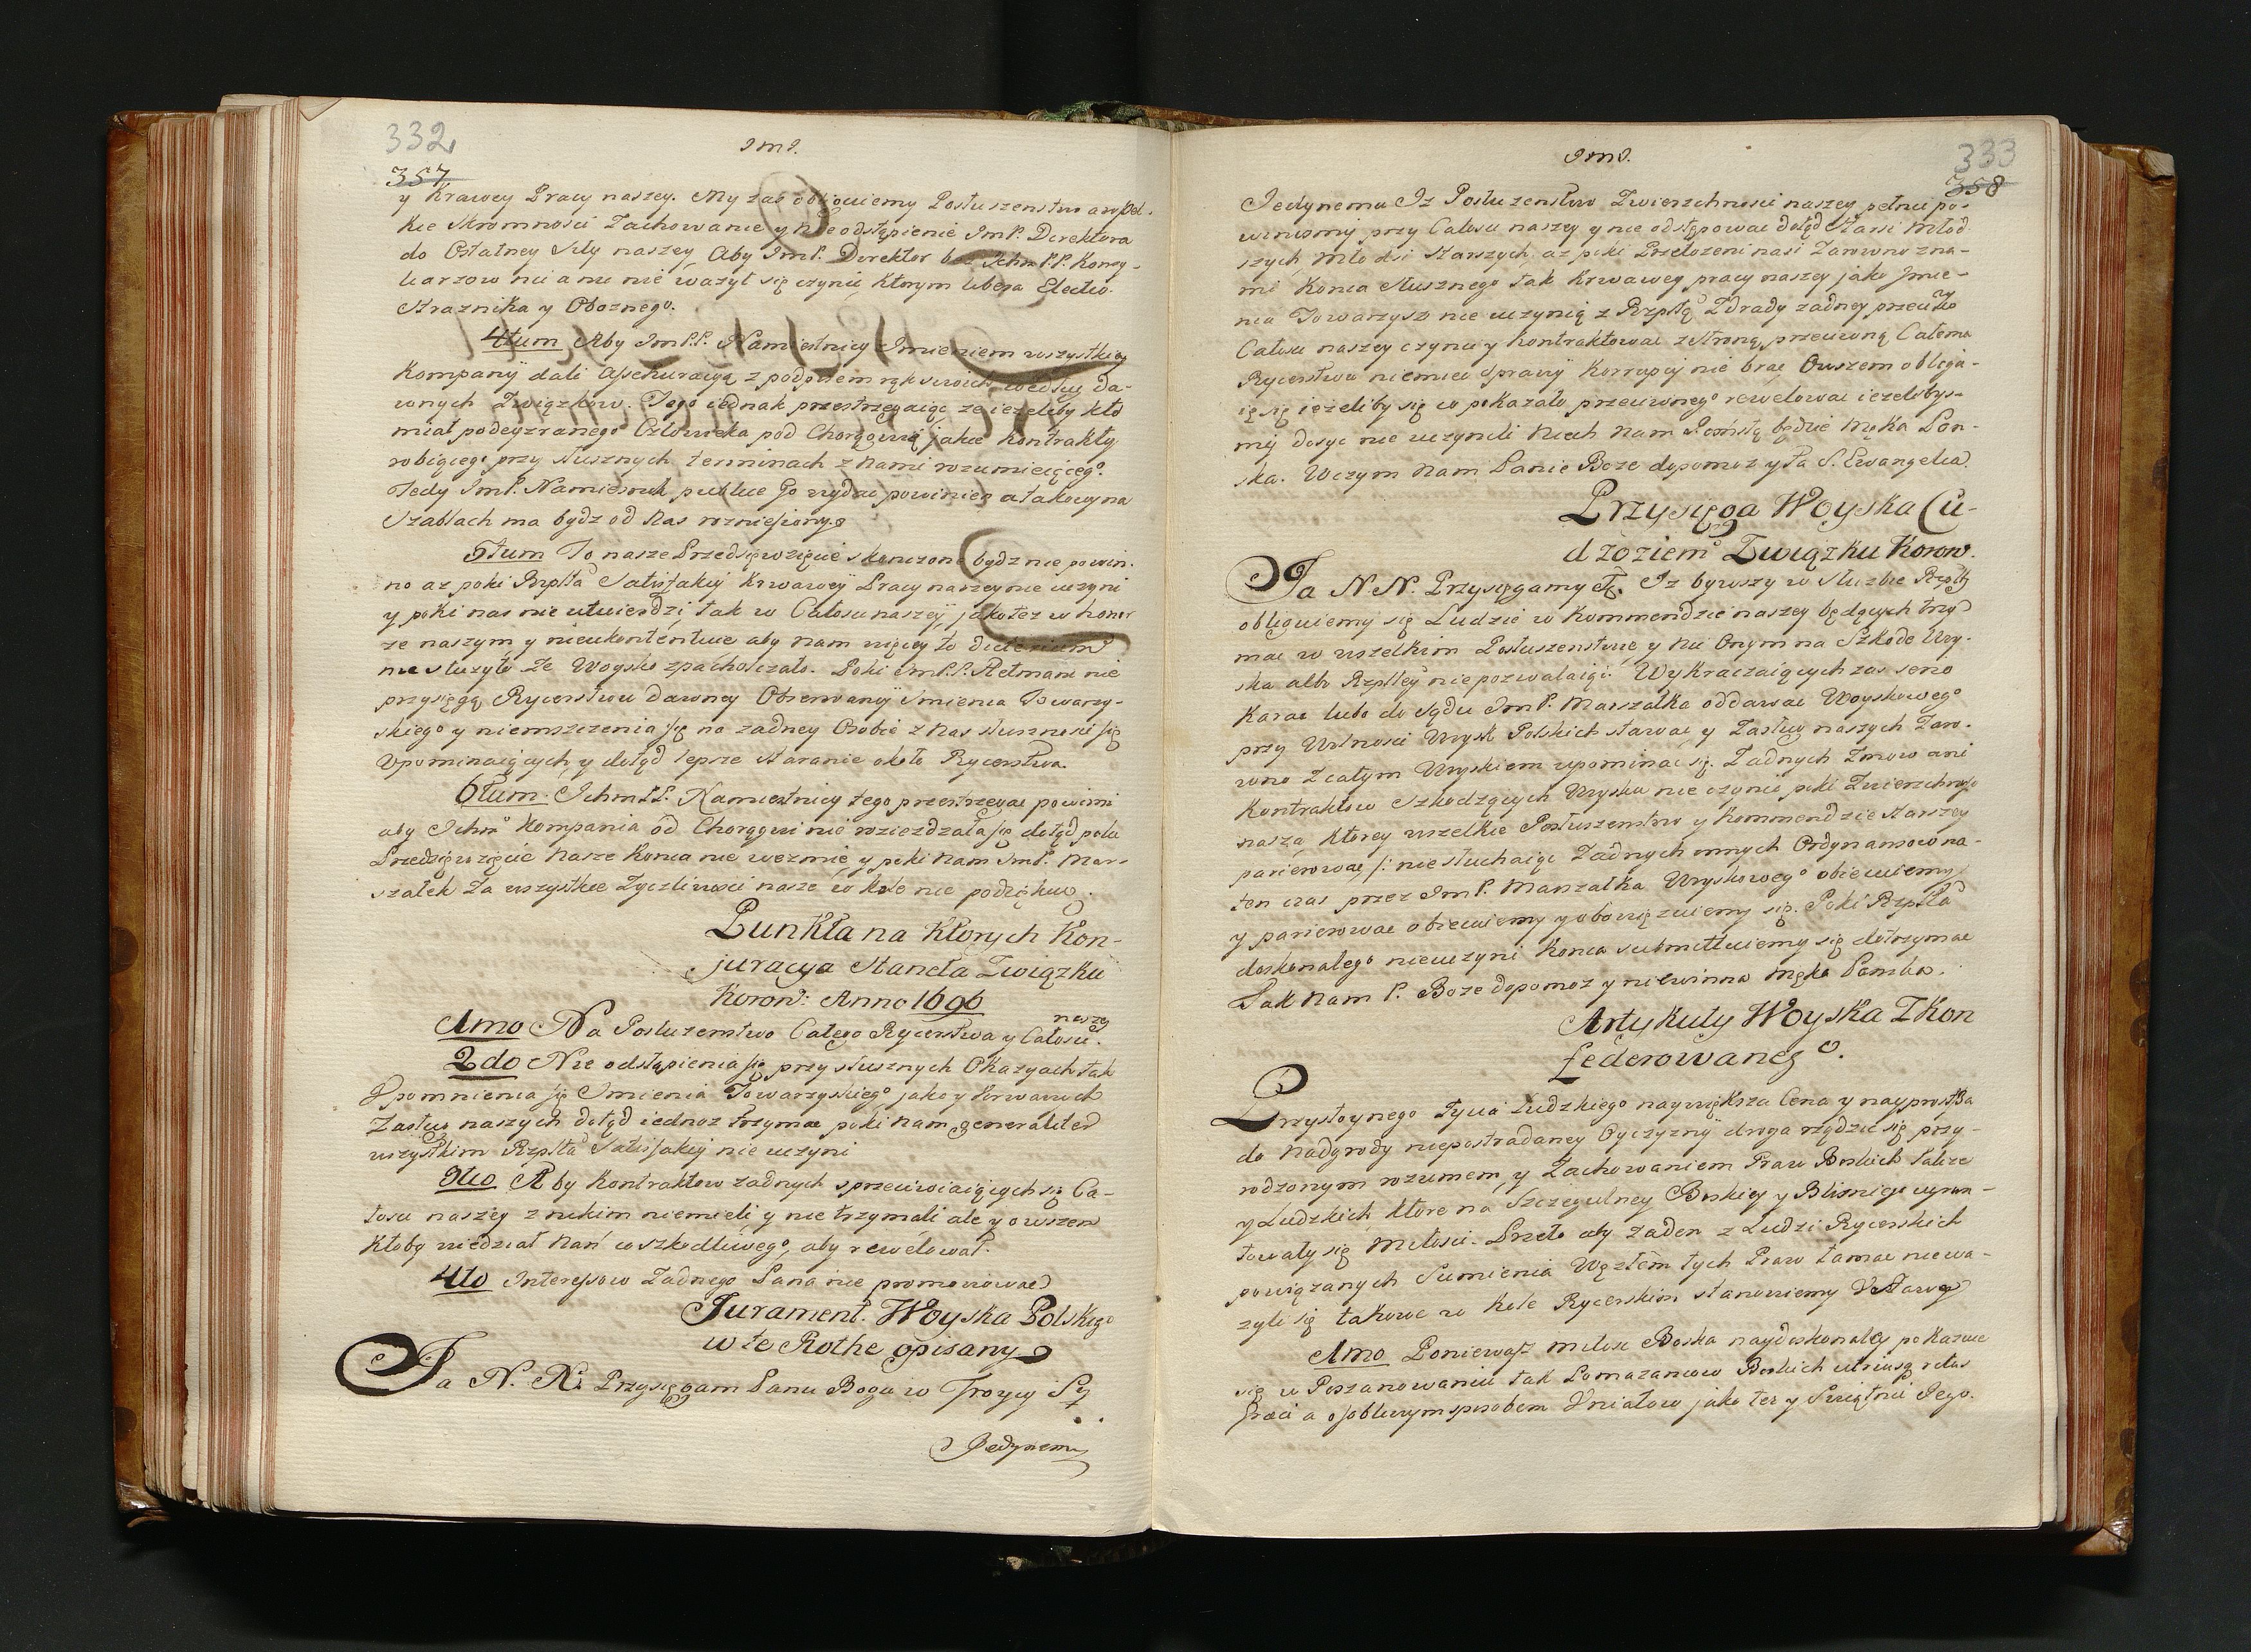 332
357
y Krawey Pracy naszey. My zas obligujemy Posłuszenstwo a wszel-
kie Skromnosci Zachowanie y nieodstąpienie ImP. Direktora
do Ostatney Siły naszey, Aby ImP. Direktor bez Ichm P.P. Konsy-
liarzow nic a nic nie ważył się czynić, Ktorym libera Electio
Straznika y Oboznego.
4tum Aby ImP.P. Namiestnicy Imieniem wszystkiey
Kompanÿ dali Assekuracyą z podpisem rąk swoich według da-
wnych Związkow. Tego iednak przestrzegaiąc ze iezeliby kto
miał podeyzranego Człowieka pod Chorągwią jakie Kontrakty
robiącego przy słusznych terminach z nami rozumieiącego.
Tedy ImP. Namiesnik publice Go wydać powinien a takowy na
Szablach ma bydz od Nas roznesiony.
5tum To nasze Przedsięwzięcie skonczone bydz nie powin-
no az poki Rzplta Satisfakcij Krwawey Pracy naszey nie uczyni
y poki nas nie utwierdzi, tak w Całosci naszey, jako tez w hono-
rze naszym, y nieukontentuie aby nam więcey to
nie słuzyło ze Woysko zpachołczało. Poki ImP.P. Hetmani nie
przysięgą Rycerstwu dawney Obserwanÿ Imienia Towarzy-
skiego y niemszczenia się na zadney Osobie z Nas słusznosci się
Vpominaiących, y dotąd lepsze Staranie około Rycerstwa.
6tum. Ichm P.P. Namiestnicy tego przestrzegac powinni
aby Ichm Kompania od Chorągwi nie rozieżdzała się dotąd poki
Przedsięwzięcie Nasze Konca nie wezmie, y poki Nam ImP. Mar-
szałek za wszystkie Zyczliwosci nasze w Kole nie podziękuie.
Punkta na Ktorych Kon-
juracya Stanęła Związku
Koron: Anno 1696
1mo Na Posłuzenstwo Całego Rycerstwa y Całosci naszey.
2do Nie odstąpienia się przy słusznych Okazyach tak
Vpomnienia się Imienia Towarzyskiego, jako y Krwawych
Zasług naszych dotąd iednoz trzymac poki nam generaliter
wszystkim Rzplta Satisfakcij nie uczyni
3tio Aby Kontraktow zadnych sprzeciwiaiących się Ca-
łosci naszey z nikim niemieli y nie trzymali ale y owszem
Ktoby wiedział nań co szkodliwego, aby rewelował.
4to Interessow Zadnego Pana nie promowowac
Jurament. Woyska Polskiego
w te Rothe opisany
Ja N. N. Przysięgam Panu Bogu w Troycy Sę
Jedynemu
333
358
Jedynemu Iz Posłuzenstwo Zwierzchnosci naszey pełnic po-
winnismy przy Całosci naszey y nie odstępowac dotąd Starsi Młod-
szych, Młodsi Starszych az poki Przełozeni nasi Zarowno zna-
mi Konca słusznego tak Krwawey pracy naszey jako Imie-
nia Towarzysz nie uczynią z Rzpltą Zdrady zadney przeciwko
Całosci naszey czynic y Kontraktowac z stroną przeciwną Całemu
Rycerstwu niemiec sprawÿ Korrupcij nie brac Owszem obliga-
ię się ieżeliby się co pokazało przeciwnego rewelowac iezelibys-
mÿ dosyc nie uczynili Niech Nam Pomstą będzie Męka Pan-
ska. Wczym Nam Panie Boze dopomoz y Ta S. Ewangelia.
Przysięga Woyska Cu-
dzoziem Związku Koron.
Ja N N. Przysięgamy Iz bywszy w Słuzbie Rzplty
obliguiemy się Ludzie w Kommendzie naszey będących trzy-
mac w wszelkim Posłuszenstwie, y na Onym na Szkode Woy-
ska albo Rzpltey nie pozwalaiąc. Wykraczaiących zas seno
Karac lubo do Sądu ImP. Marszałka oddawac Woyskowego
przy Wolnosci Woysk Polskich stawac y Zasług naszych Zaro-
wno z całym Woyskiem upominac się. Zadnych Zmow ani
Kontraktow Szkodzących Woysku nie czynic poki Zwierzchnosc
nasza Ktorey wszelkie Posłuszenstwo y Kommendzie starszey
parierowac /: niesłuchaiąc Zadnych innych Ordynansow na-
ten czas przez ImP. Marszałka Woyskowego obieciuemy
y parierowac obieciuemy y obowięzuiemy się. Poki Rzplta
doskonałego nieuczyni Konca submittuiemy się dotrzymac
Tak Nam P. Boze dopomoz y niewinna Męka Panska.
Artykuły Woyska Zkon
federowanego.
Przystoynego Zycia Ludzkiego naywiększa Cena y nayprostsza
do Nadgrody niepostradaney Oyczyznÿ droga rządzic się przy-
rodzonym rozumem, y Zachowaniem Praw Boskich także
y Ludzkich Ktore na Szczegulney Boskiey y Blizniego ugrun-
towały się Miłosci. Przeto aby Zaden z Ludzi Rycerskich
powiązanych Sumienia Węzłem tych Praw łamac niewa-
zyli się takowe w Kole Rycerskim stanowiemy Vstawy
1mo Poniewasz Miłosc Boska naydoskonaley pokazuie
się w Poszanowaniu tak Pomazancow Boskich utriusq ritus
Graci a osobliwym sposobem Vniatow jako tez y Swiątnic Jego.